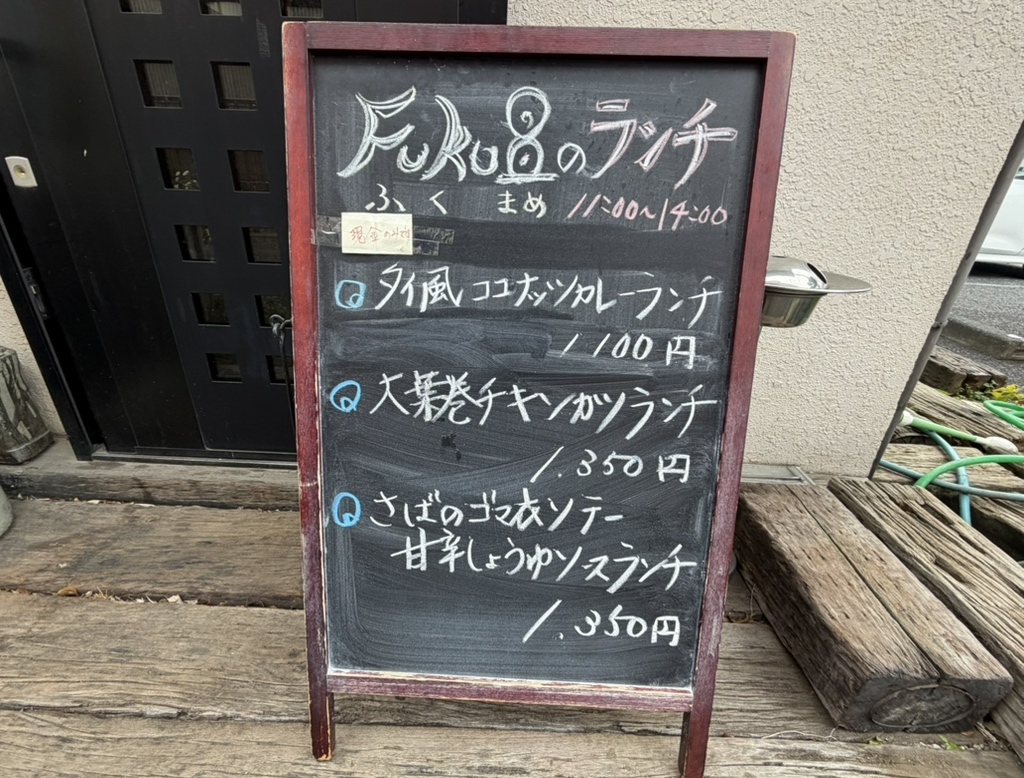 Fuku豆のランチ
ふく まめ 11:00~14:00
現金のみです
タイ風ココナッツカレーランチ
1100円
大葉巻チキンカツランチ
1.350円
さばのゴマ衣ソテー
甘辛しょうゆソースランチ
1.350円